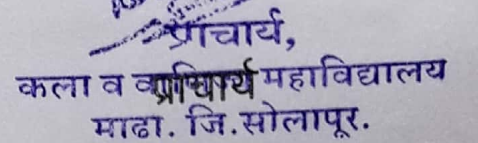 प्राचार्य,
कला व महाविद्यालय
माढा. जि.सोलापूर.